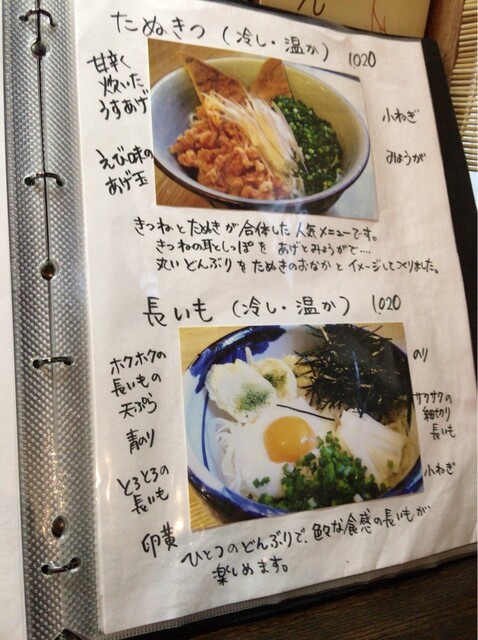 たぬきつ（冷し・温か） 1020
甘辛く
炊いた
うすあげ
えび味の
あげ玉
小ねぎ
みょうが
きつねとたぬきが合体した人気メニューです。
きつねの耳としっぽをあげとみょうがで‥‥
丸いどんぶりをたぬきのおなかとイメージしてつくりました。
長いも（冷し・温か） 1,020
ホクホクの
長いもの
天ぷら
青のり
とろとろの
長いも
卵黄
のり
サクサクの
細切り
長いも
小ねぎ
ひとつのどんぶりで、色々な食感の長いもが
楽しめます。